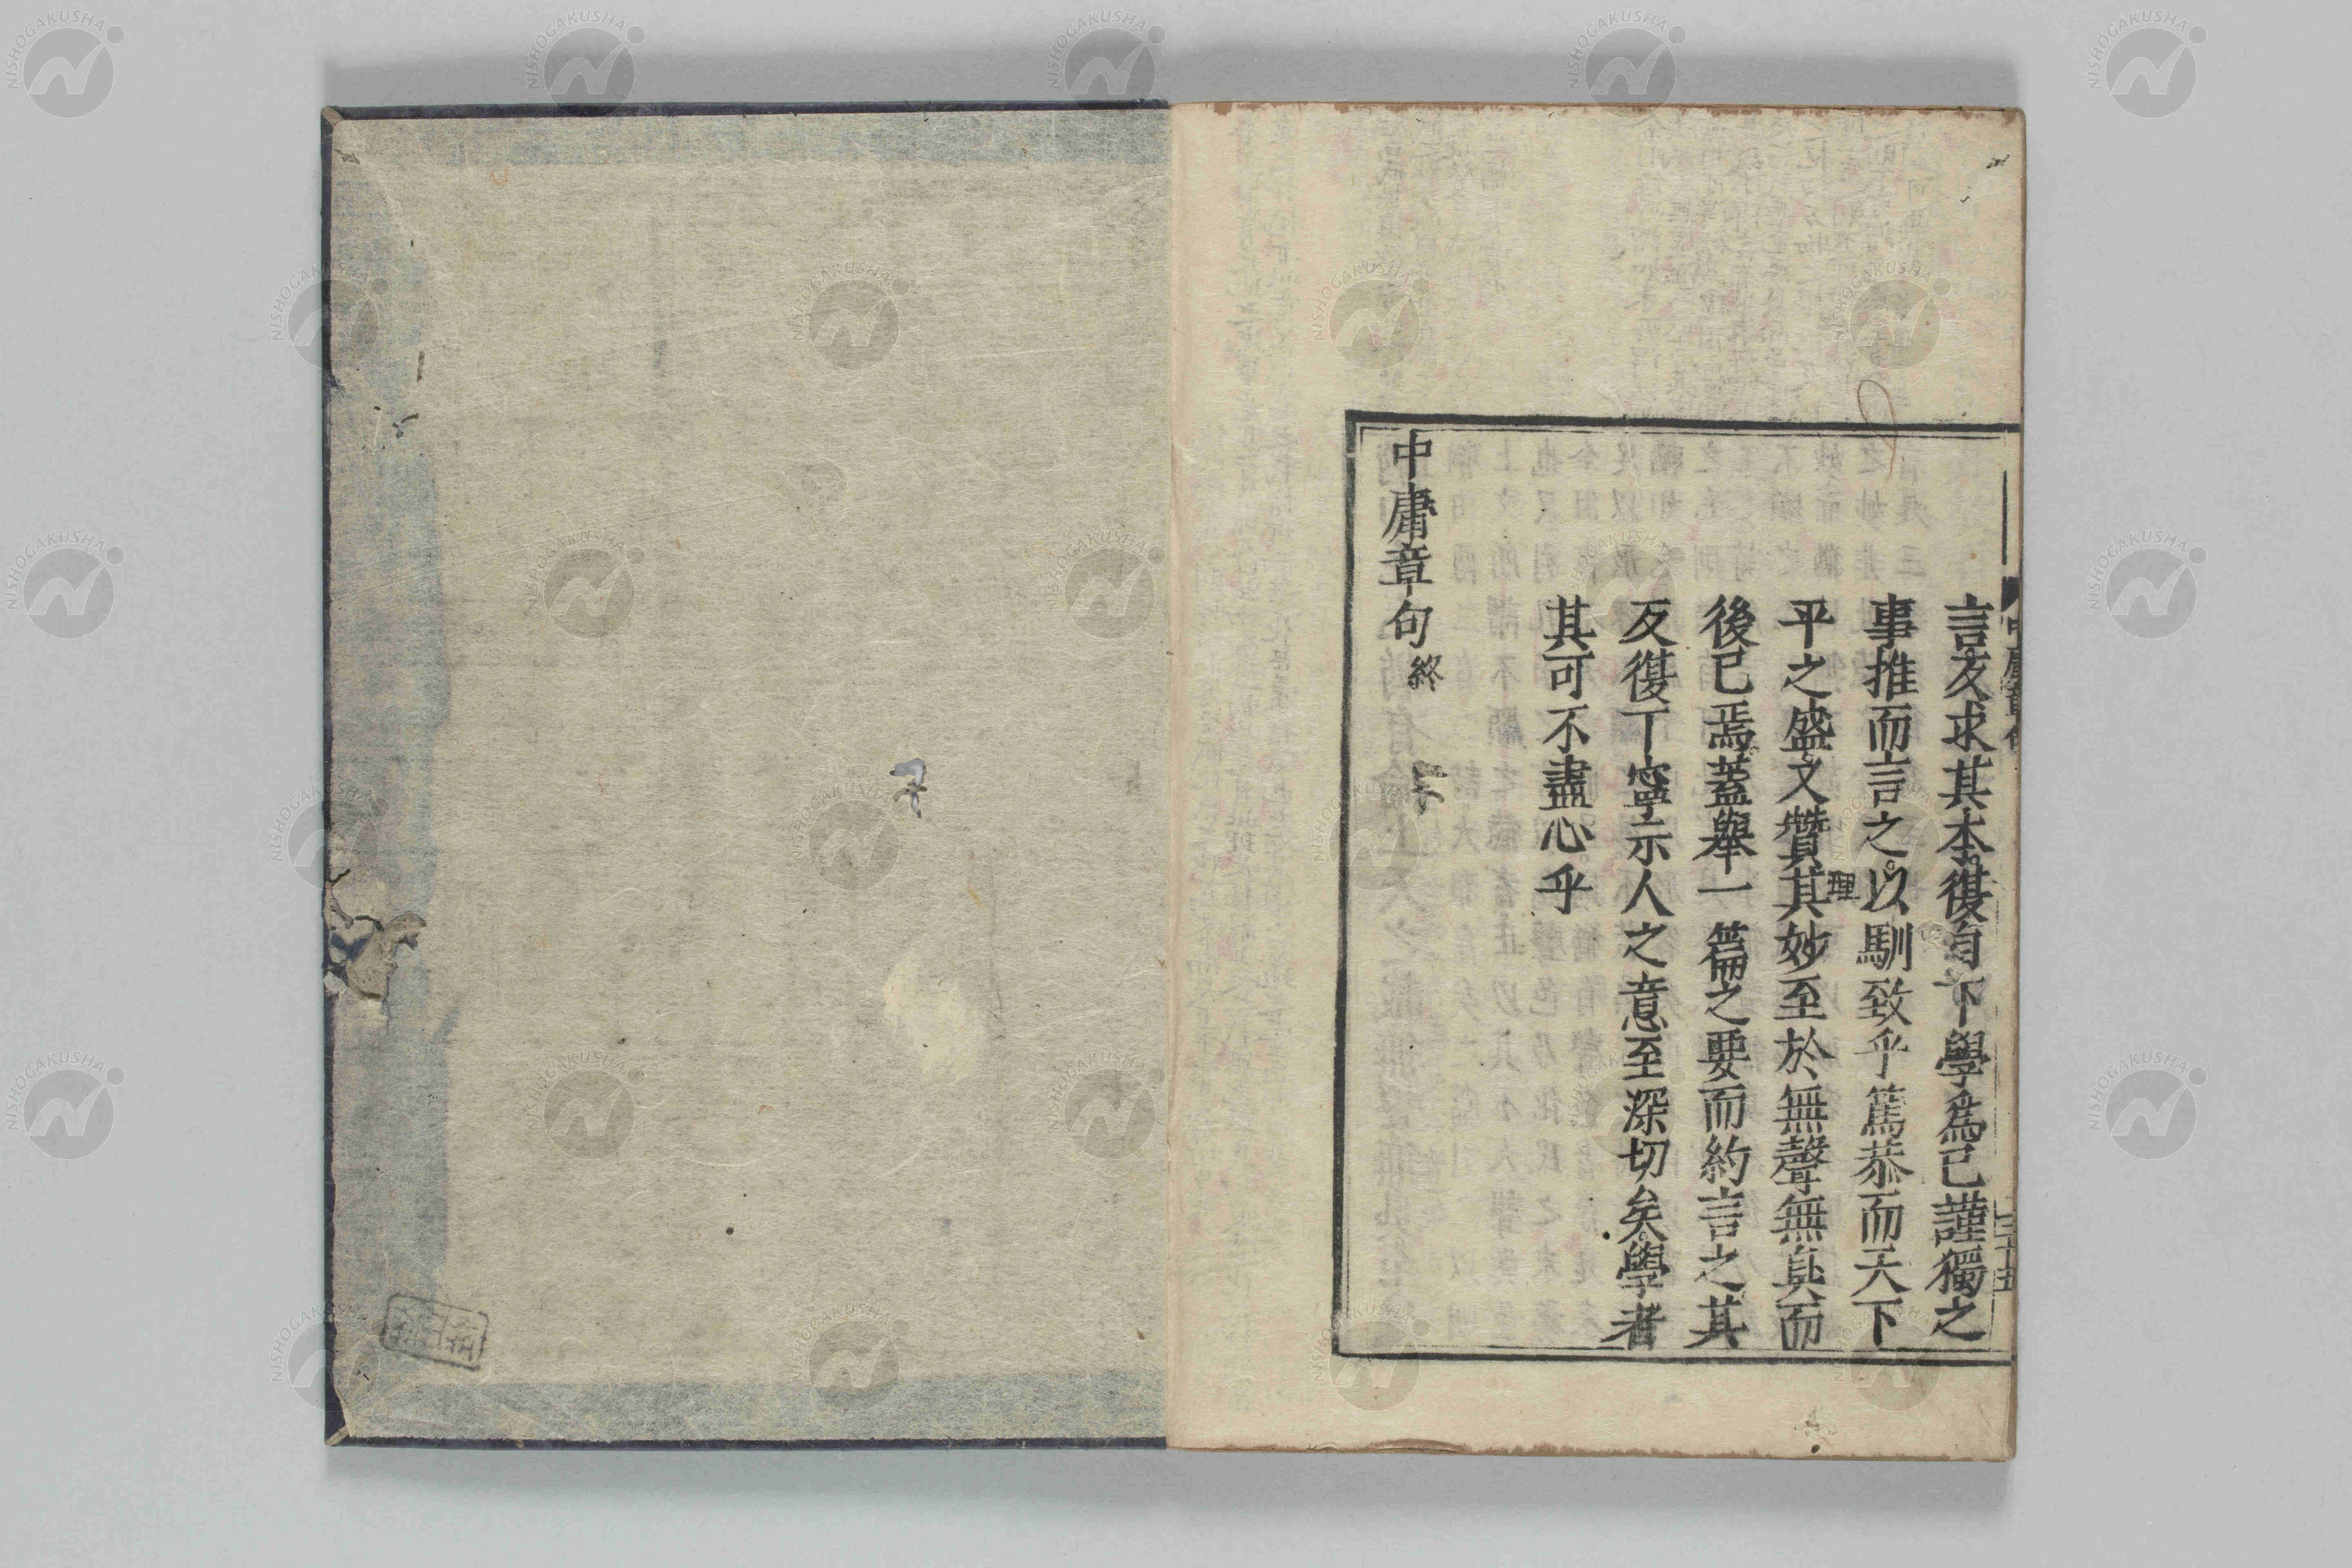 言友求其本復自下學爲己謹獨之
事推而言之以馴致乎篤恭而天下
理
平之盛又贊其妙至於無聲無臭而
後已焉蓋舉一篇之要而約言之其
反復丁寧示人之意至深切矣學者
其可不盡心乎
中庸章句終
三十五
NISHOGAKUSHA